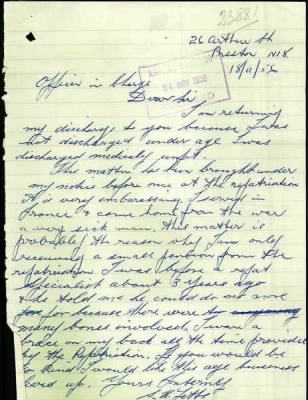 23881
26 Arthur St
Preston N18.
18/11/56
21 NOV 1956
Officer in Charge
Dear Sir,
I am returning
my discharge to you because I was
not discharged under age I was
discharged medicly unfit.
This matter has been brought under
my notice before once at the repatriation
it is very embarassing. I served in
France & came home from the war
a very sick man. This matter is
probably the reason why I am only
receiving a small pention from the
repatriation I was before a repat
specialist about 3 years ago
& he told me he could do no more
for because there were to
many bones involved. I wear a
brace on my back all the time provided
by the Repatriation. If you would be
so kind I would like this age business
fixed up. Yours Faithfully